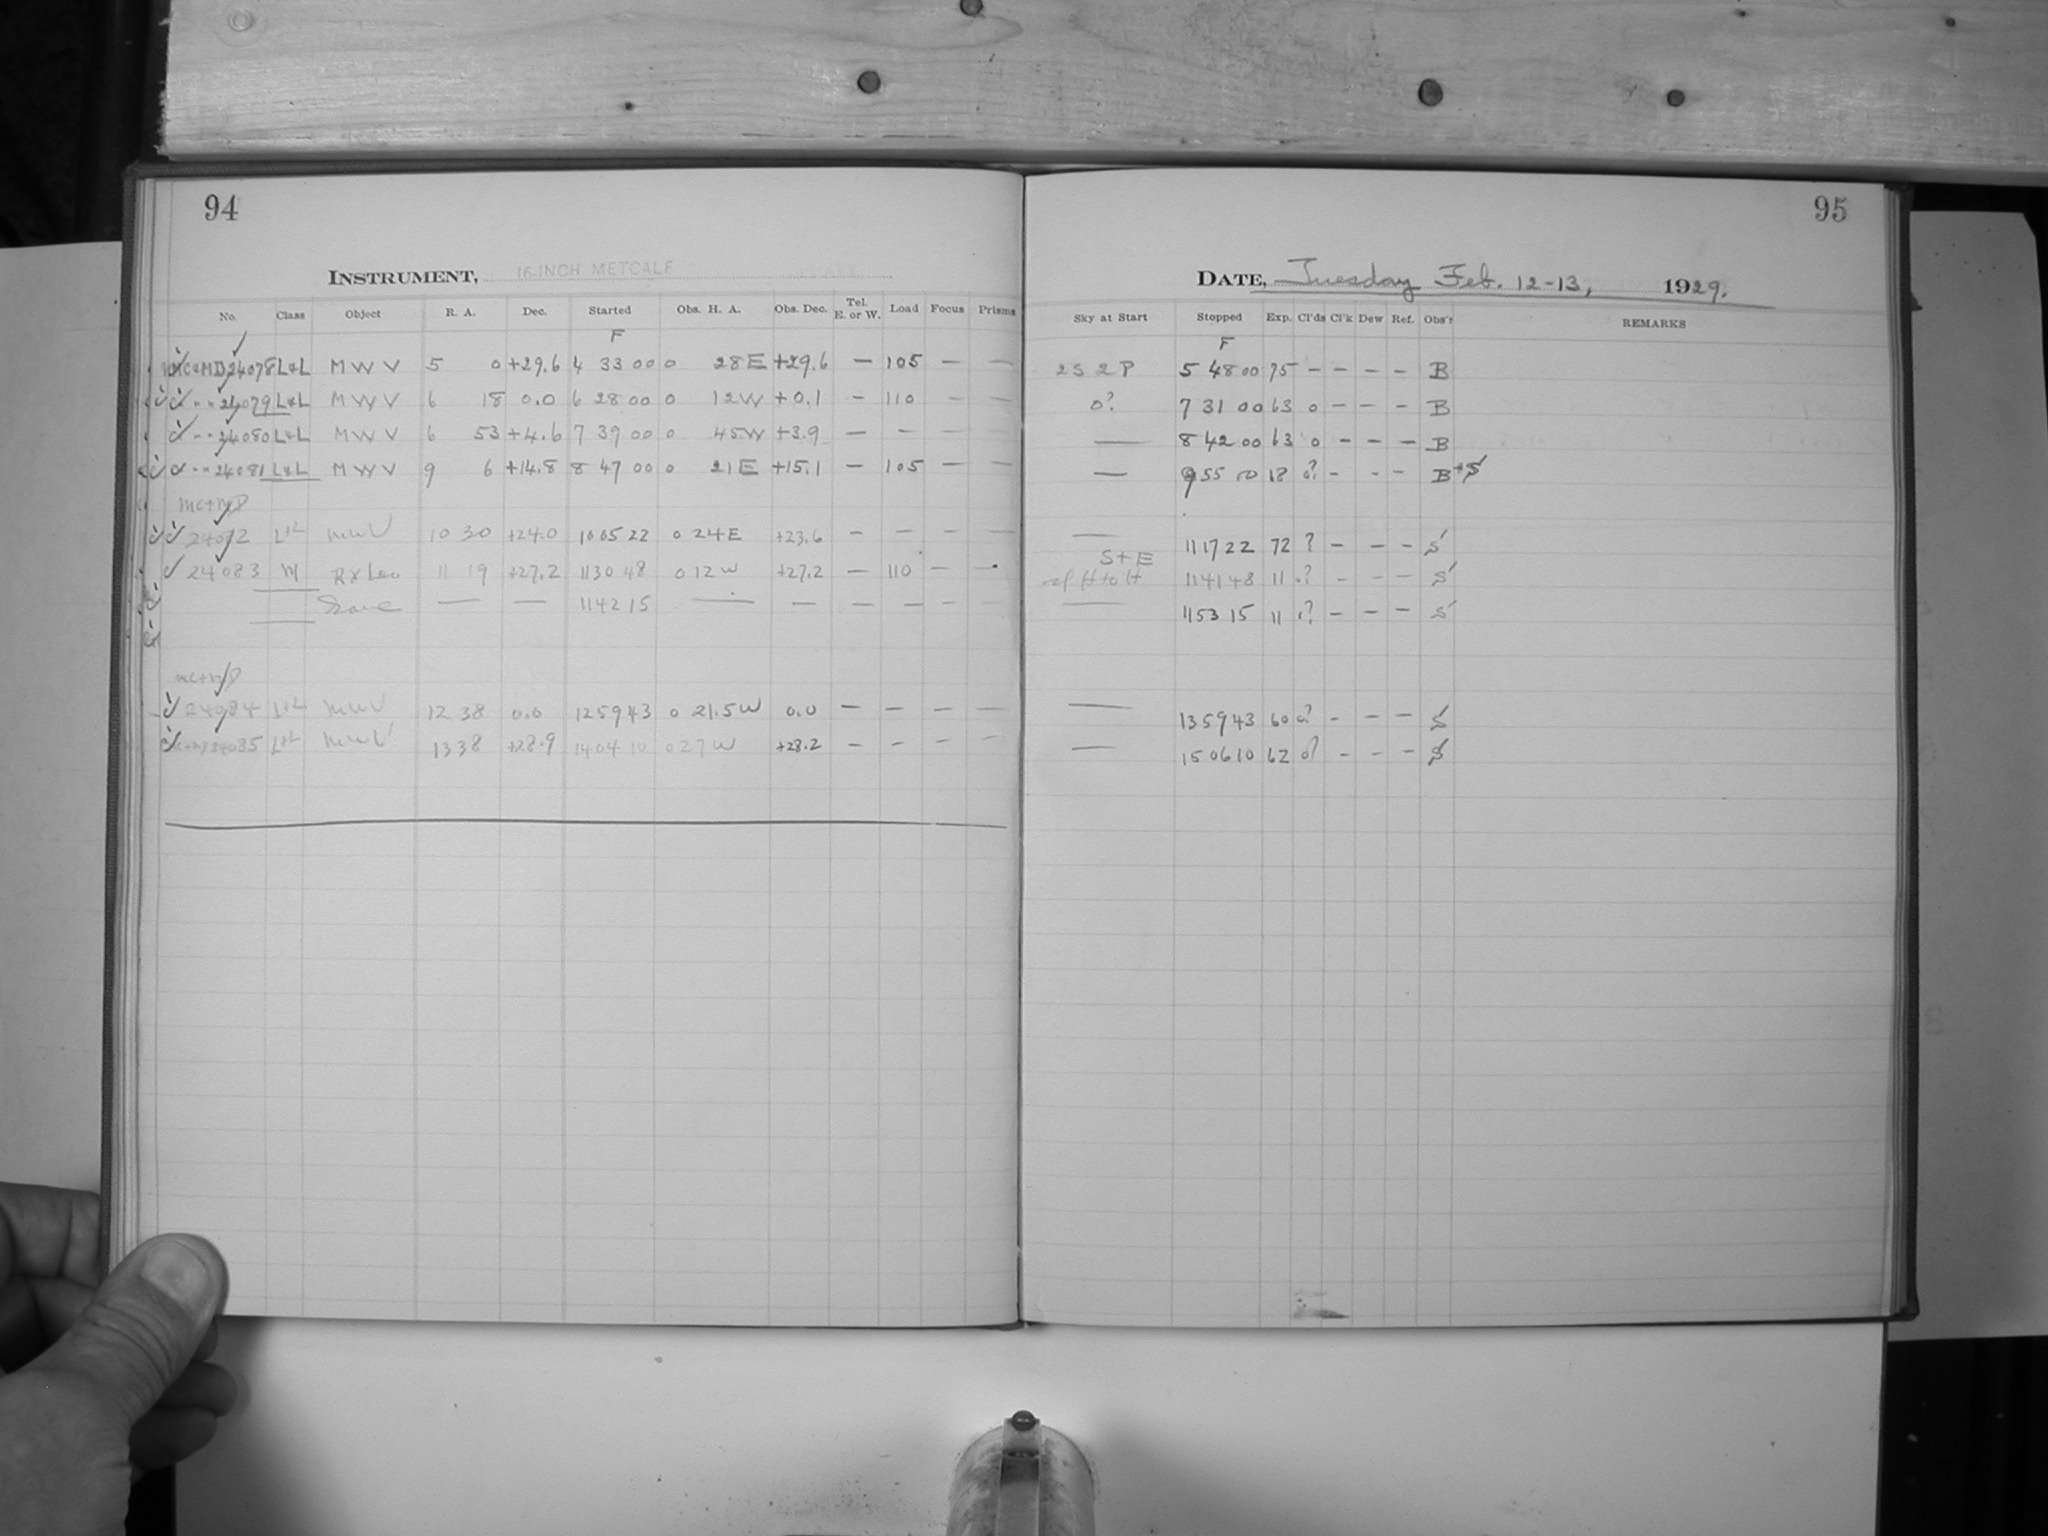 94
INSTRUMENT, 16-INCH METCALF
No. Class Object R. A. Dec. Started Obs. H. A. Obs. Dec. Tel. E. or W. Load Focus Prisms
F
MC&MD 24078 L&L M W V 5 0 +29.6 4 33 00 0 28 E +29.6 — 105 — —
" " 24079 L&L M W V 6 18 0.0 6 28 00 0 12 W +0.1 — 110 — —
" " 24080 L&L M W V 6 53 +4.6 7 39 00 0 45 W +3.9 — — — —
" " 24081 L&L M W V 9 6 +14.8 8 47 00 0 21 E +15.1 — 105 — —
MC+MD
24082 L+L MWV 10 30 +24.0 10 05 22 0 24 E +23.6 — — — —
24083 M RX Leo 11 19 +27.2 11 30 48 0 12 W +27.2 — 110 — —
Same — — 11 42 15 — — — — — —
MC+MD
24084 L+L MWV 12 38 0.0 12 59 43 0 21.5 W 0.0 — — — —
24085 L+L MWV 13 38 +28.9 14 04 10 0 27 W +28.2 — — — —
95
DATE, Tuesday Feb. 12-13, 1929.
Sky at Start Stopped Exp. Cl'ds Cl'k Dew Ref. Obs'r REMARKS
F
2S 2P 5 48 00 75 — — — — B
0? 7 31 00 63 0 — — — B
— 8 42 00 63 0 — — — B
— 9 55 00 18 0? — — — B+S
— 11 17 22 72 ? — — — S
S+E
H to H 11 41 48 11 0? — — — S
— 11 53 15 11 0? — — — S
— 13 59 43 60 0? — — — S
— 15 06 10 62 0? — — — S